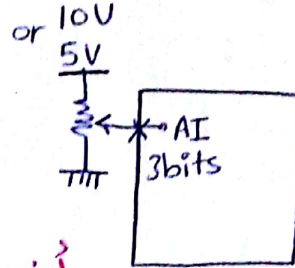 or 10V
5V
AI
3bits
?